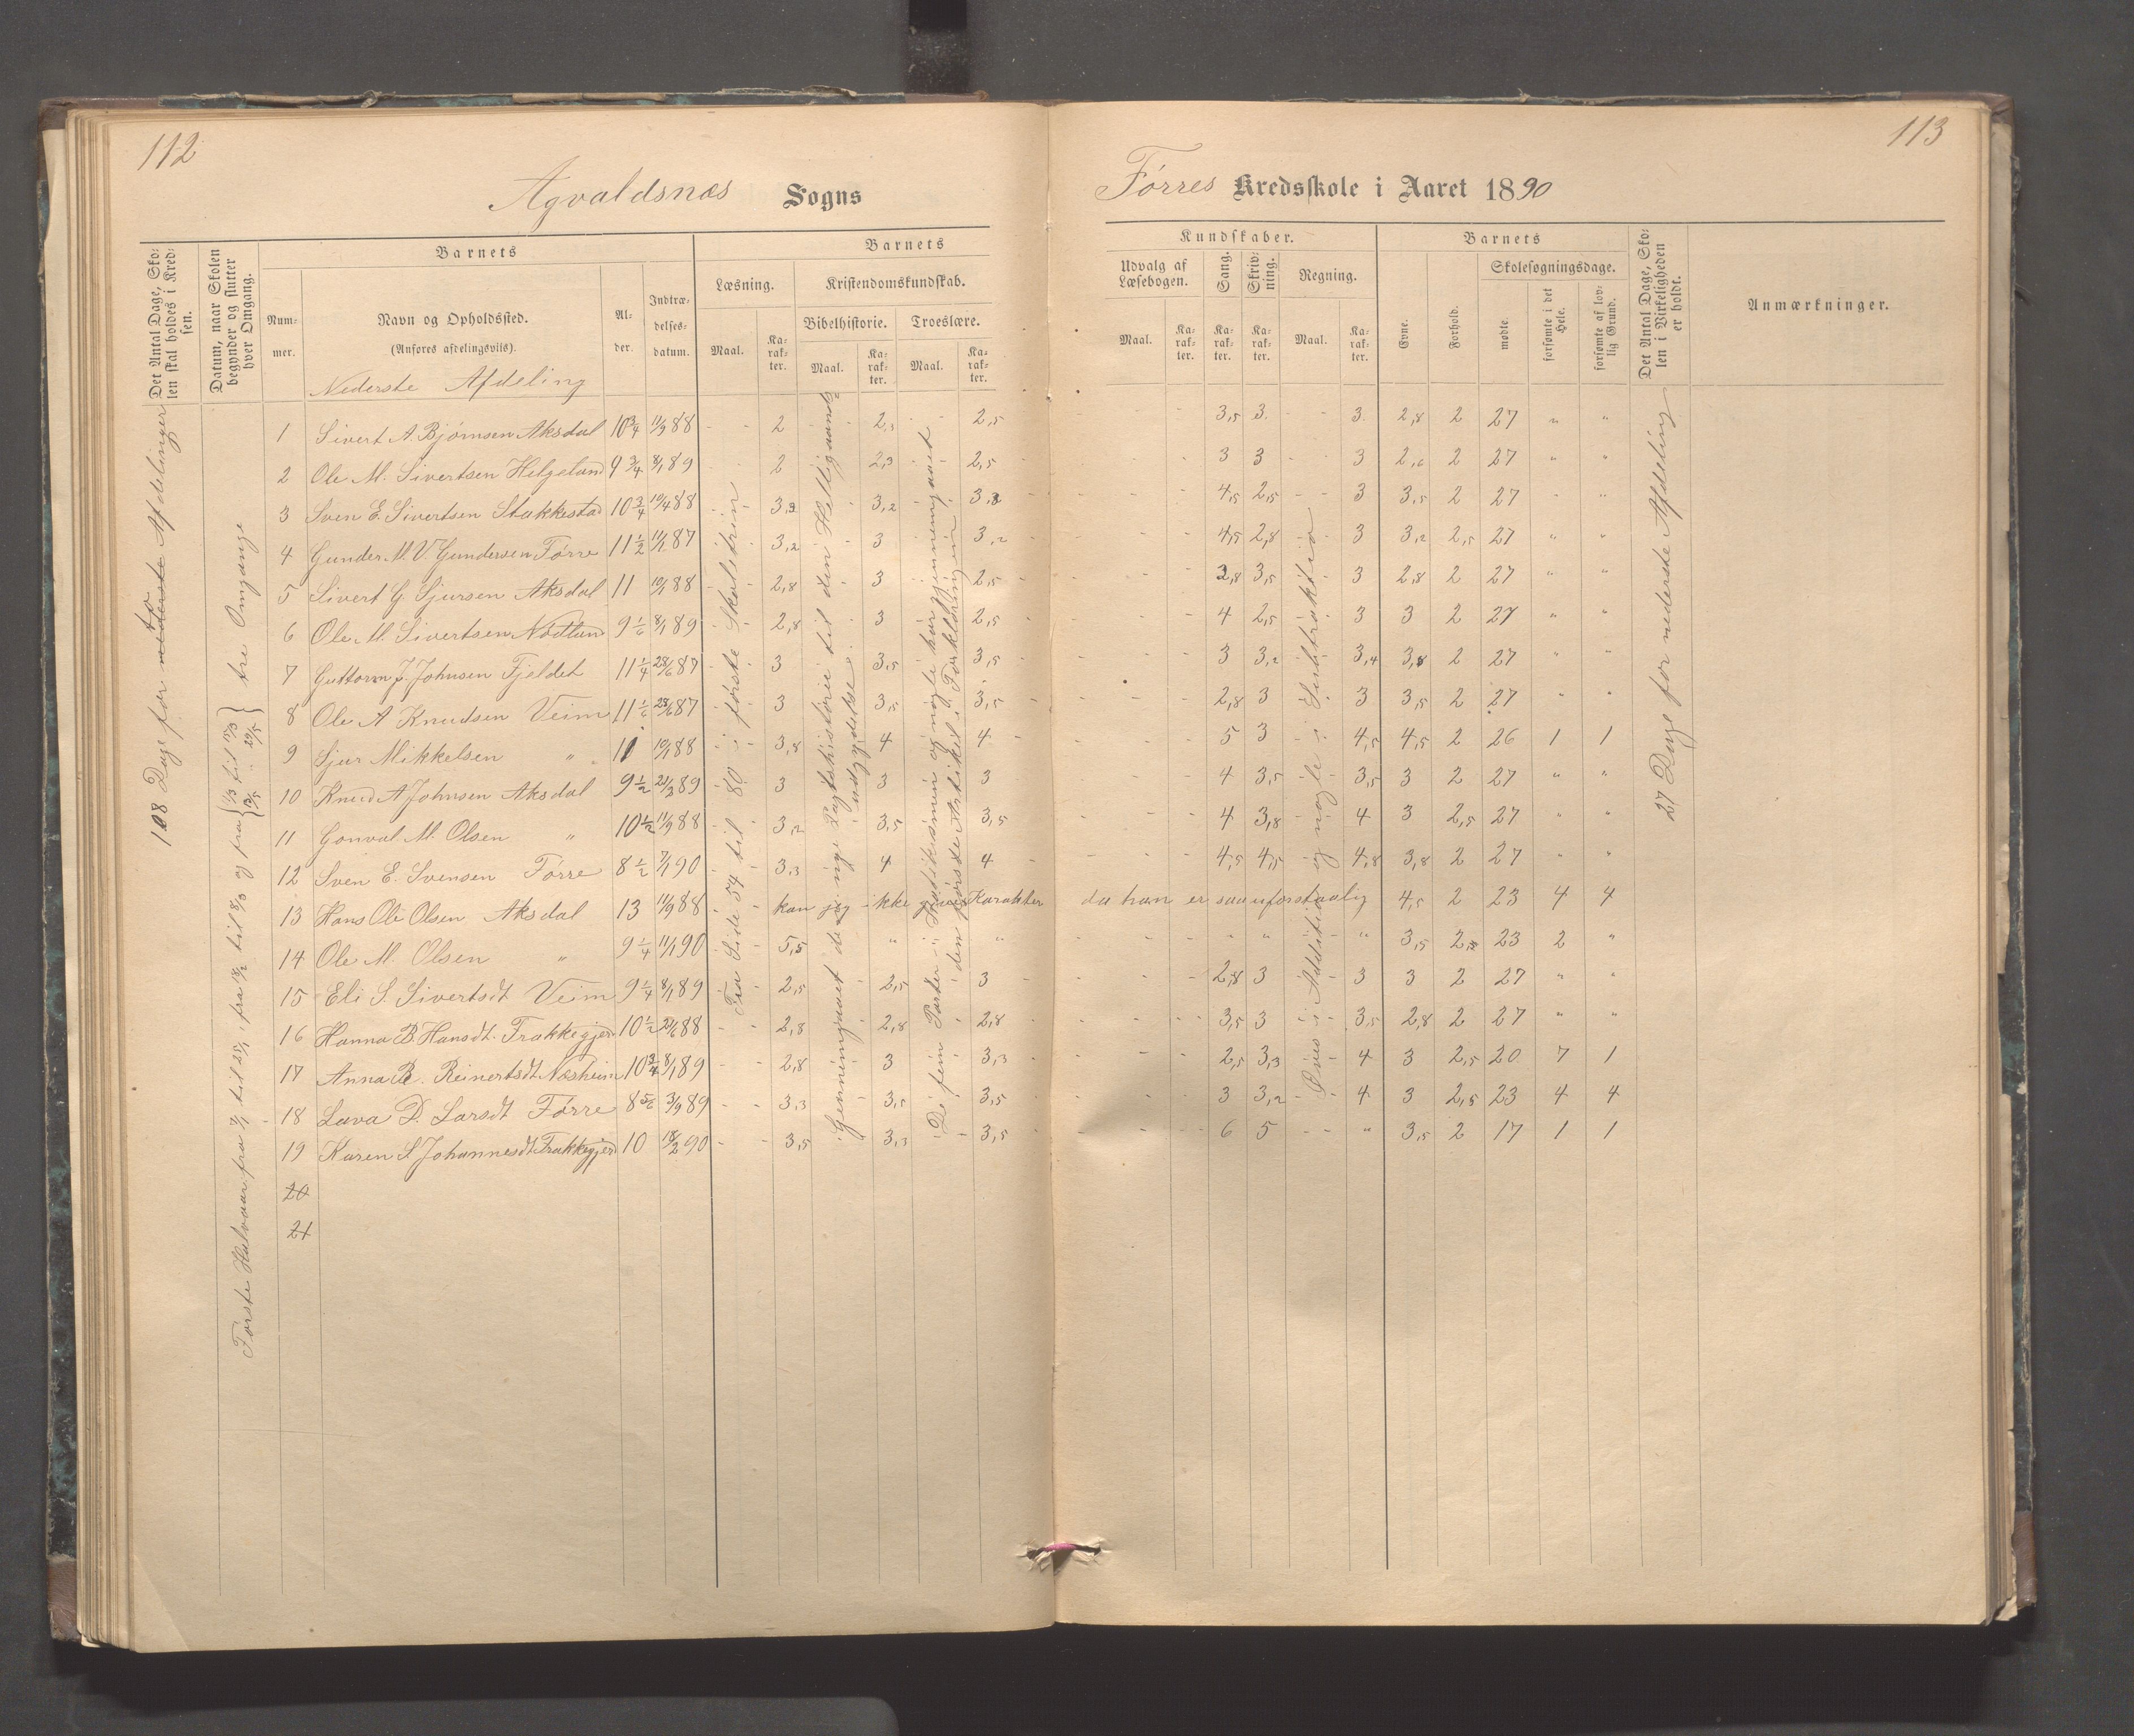 112
113
Agvaldsnæs Sogns
Førres Kredsskole i Aaret 1890
Det Antal Dage, Skolen skal holdes i Kredsen.
Datum, naar Skolen begynder og slutter hver Omgang.
Barnets
Nummer.
Navn og Opholdssted.
(Anføres afdelingsvis).
Alder.
Indtrædelsesdatum.
Barnets
Læsning.
Maal.
Karakter.
Kristendomskundskab.
Bibelhistorie.
Troeslære.
Maal.
Karakter.
Maal.
Karakter.
Kundskaber.
Udvalg af Læsebogen.
Maal.
Karakter.
Sang.
Karakter.
Skrivning.
Karakter.
Regning.
Maal.
Karakter.
Barnets
Evne.
Forhold.
Skolesøgningsdage.
mødte
forsømte i det Hele.
forsømte af lovlig Grund.
Det Antal Dage, Skolen i Virkeligheden er holdt.
Anmærkninger.
Nederste Afdeling
108 Dage for nederste to Afdelinger
tre Omgange
Første Halvaar fra
Fra Side 54 til 80 i første Skoletrin
Gjennemgaaet den nye Pagtshistorie til den Helligaands udgydelse.
De fem Parter i Katekismen og nogle har gjennemgaaet den første Artikel i Forklaringen
Øves i Addition og nogle i Subtraktion
27 Dage for nederste Afdeling
1 Sivert A. Bjørnsen Aksdal 10 3/4 11/9 88 2 2,3 2,5 3,5 3 3 2,8 2 27 " "
2 Ole M. Sivertsen Helgeland 9 3/4 8/1 89 2 2,3 2,5 3 3 3 2,6 2 27 " "
3 Sven E. Sivertsen Stakkestad 10 3/4 10/4 88 3,2 3,2 3,2 4,5 2,5 3 3,5 2 27 " "
4 Gunder M. V. Gundersen Førre 11 1/2 11/1 87 3,2 3 3,2 4,5 2,8 3 3,2 2,5 27 " "
5 Sivert G. Sjursen Aksdal 11 10/1 88 2,8 3 2,5 2,8 3,5 3 2,8 2 27 " "
6 Ole M. Sivertsen Nødtun 9 1/6 8/1 89 2,8 3 2,5 4 2,5 3 3 2 27 " "
7 Guttorm J. Johnsen Fjeldet 11 1/4 28/6 87 3 3,5 3,5 3 3,2 3,4 3,8 2 27 " "
8 Ole A Knudsen Veim 11 1/6 28/6 87 3 3,5 3,5 2,8 3 3 3,5 2 27 " "
9 Sjur Mikkelsen " 11 10/1 88 3,8 4 4 5 3 4,5 4,5 2 26 1 1
10 Knud A Johnsen Aksdal 9 1/2 21/3 89 3 3 3 4 3,5 3,5 3 2 27 " "
11 Gonval M. Olsen " 10 1/2 11/9 88 3,2 3,5 3,5 4 3,8 4 3 2,5 27 " "
12 Sven E. Svensen Førre 8 1/2 7/1 90 3,3 4 4 4,5 4,5 4,8 3,8 2 27 " "
13 Hans Ole Olsen Aksdal 13 11/9 88 kan jeg ikke give Karakter da han er saa uforstaalig 4,5 2 23 4 4
14 Ole M. Olsen " 9 1/4 11/1 90 5,5 " " " " 3,5 2,5 23 2 "
15 Eli S. Sivertsdt Veim 9 1/4 8/1 89 2,5 2,5 3 2,8 3 3 3 2 27 " "
16 Hanna B. Hansdt. Frakkegjerd 10 1/2 88 2,8 2,8 2,8 3,5 3 3,5 2,8 2 27 " "
17 Anna B. Reinertsdt Næsheim 10 3/4 8/1 89 2,8 3 3,3 2,5 3,3 4 3 2,5 20 7 1
18 Lava D. Larsdt Førre 8 5/6 3/9 89 3,3 3,5 3,5 3 3,2 4 3 2,5 23 4 4
19 Karen S Johannesdt Frakkegjerd 10 18/2 90 3,5 3,3 3,5 6 5 " 3,5 2 17 1 1
20
21